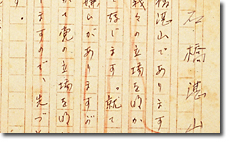 石橋湛山
橋湛山であります
我々の立場を明か
と存じます。就て
があります
党の立場を明か
ますのが、先づ